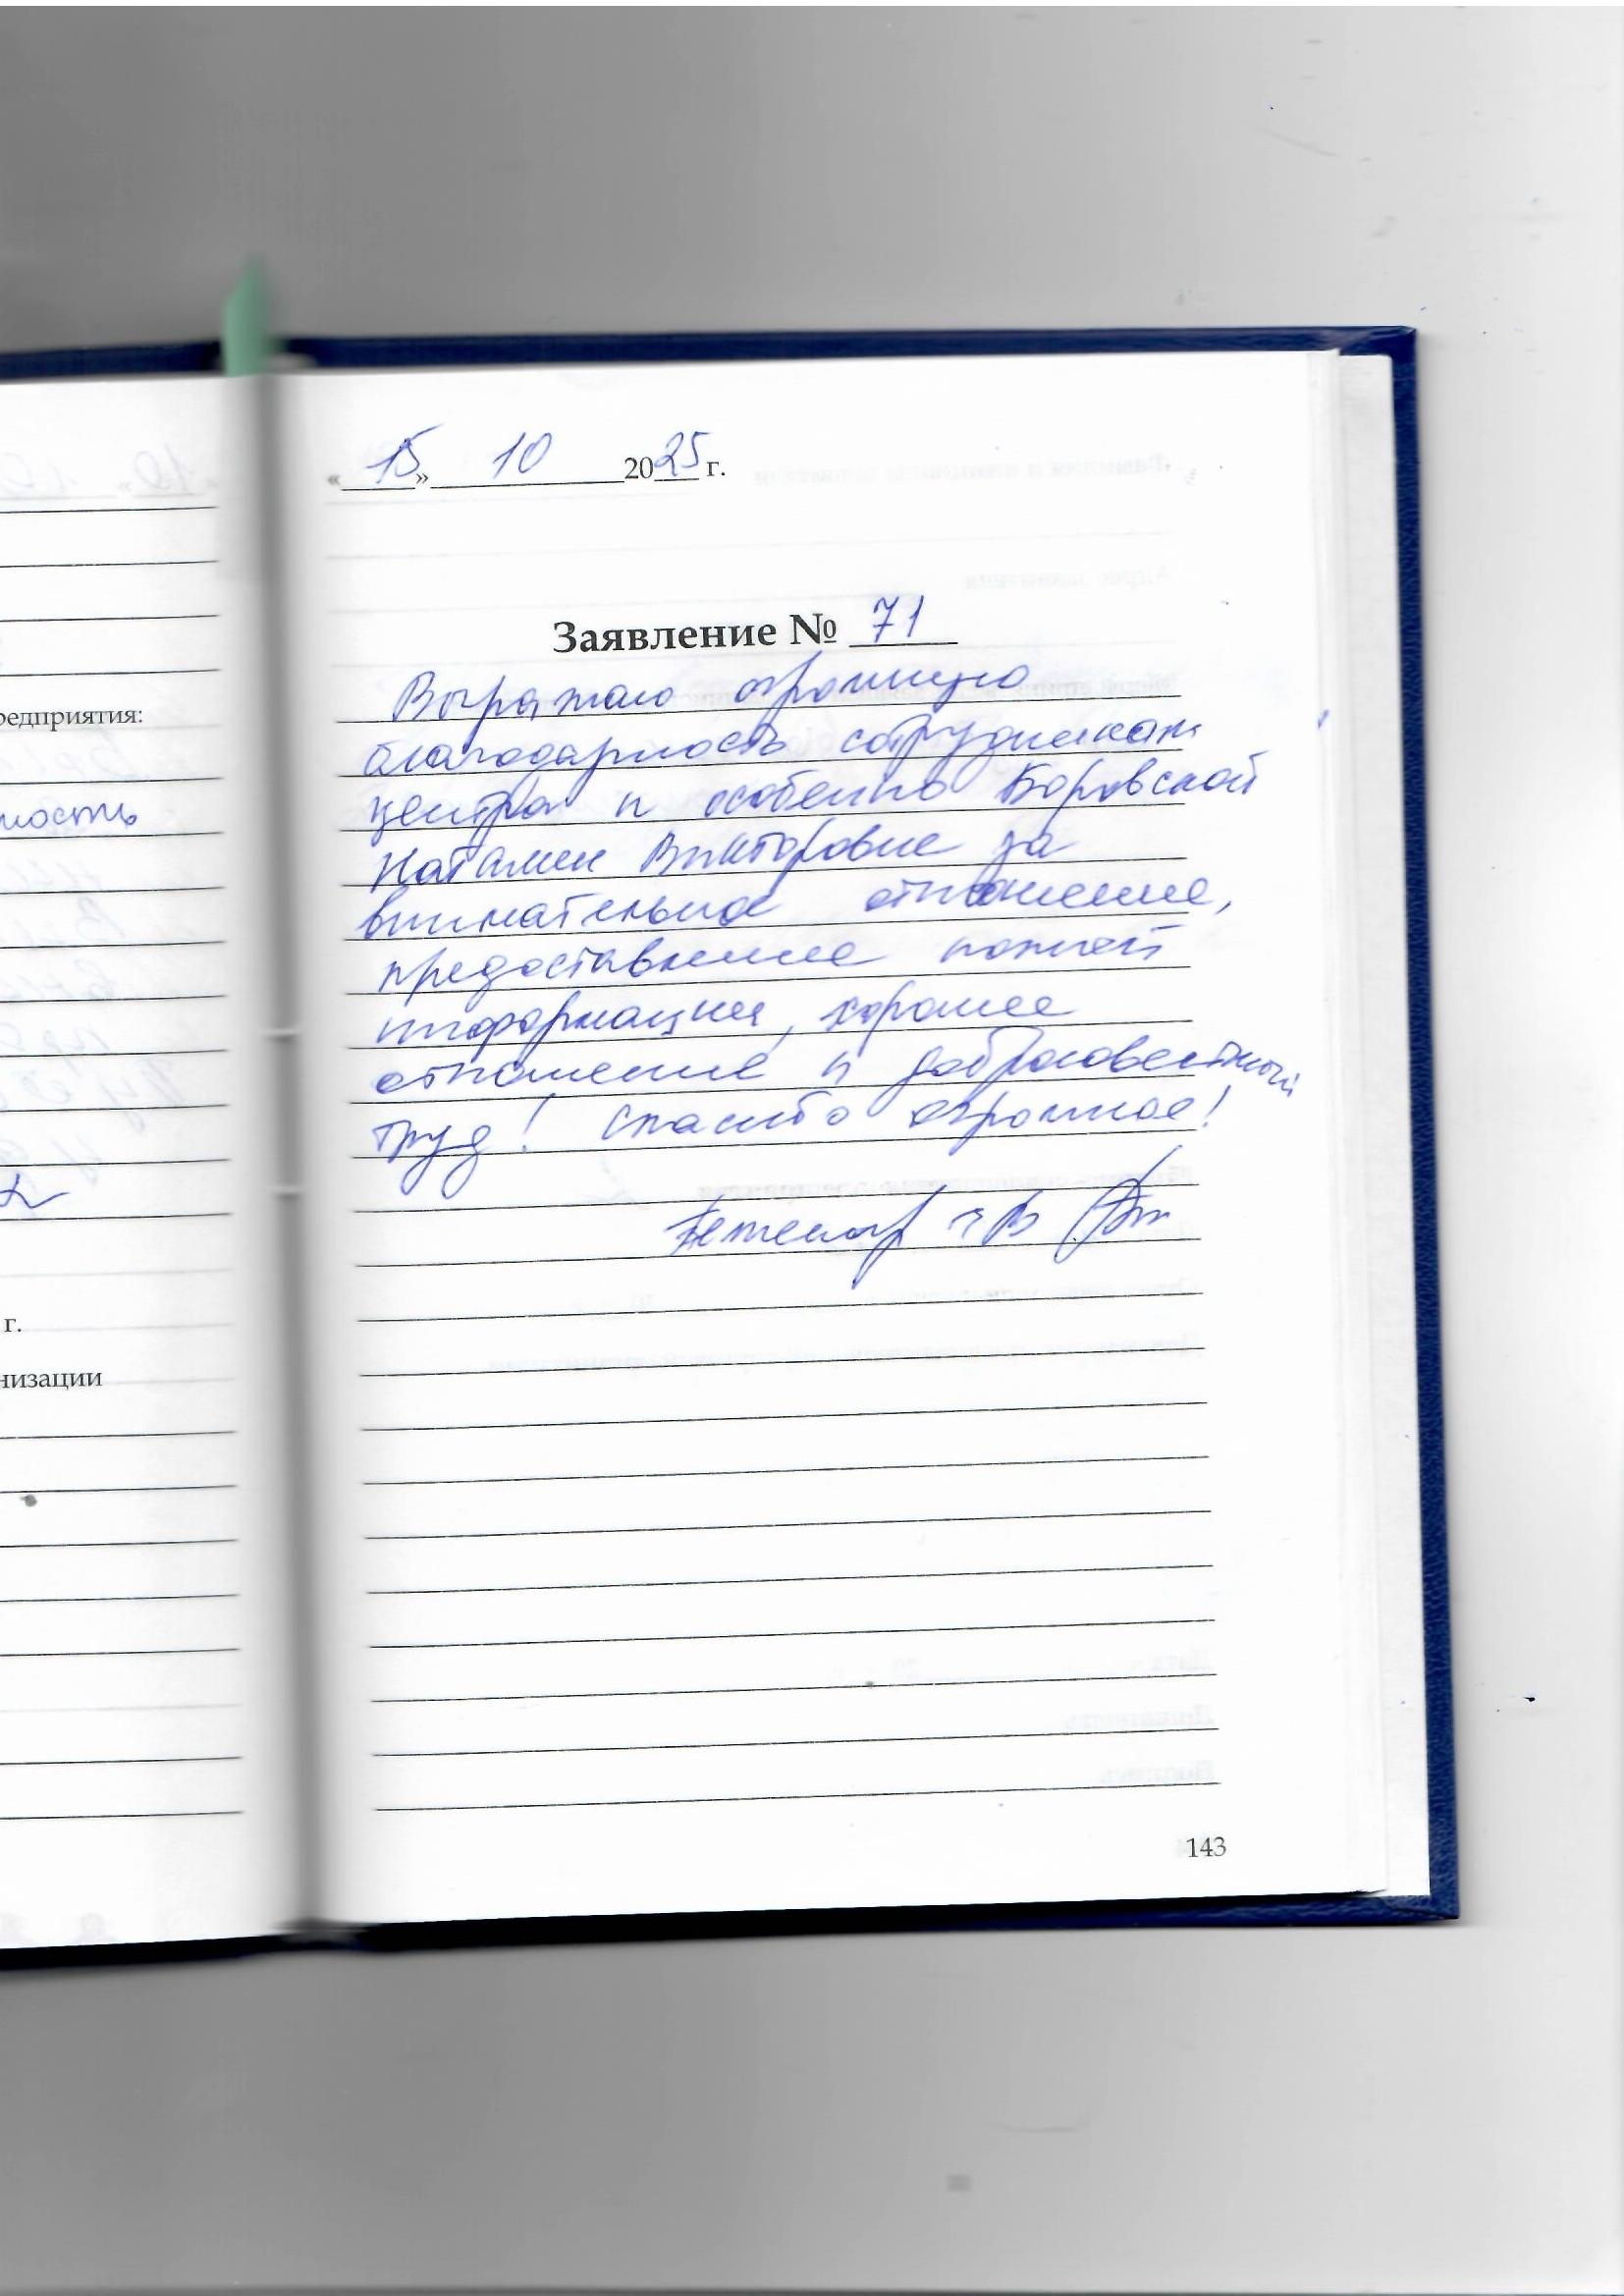 «15» 10 2025 г.
Заявление № 71
Выражаю огромную
благодарность сотрудникам
центра и особенно Боровской
Наталии Викторовне за
внимательное отношение,
предоставление полной
информации, хорошее
отношение и добросовестный
труд! Спасибо огромное!
143
редприятия:
ность
г.
низации